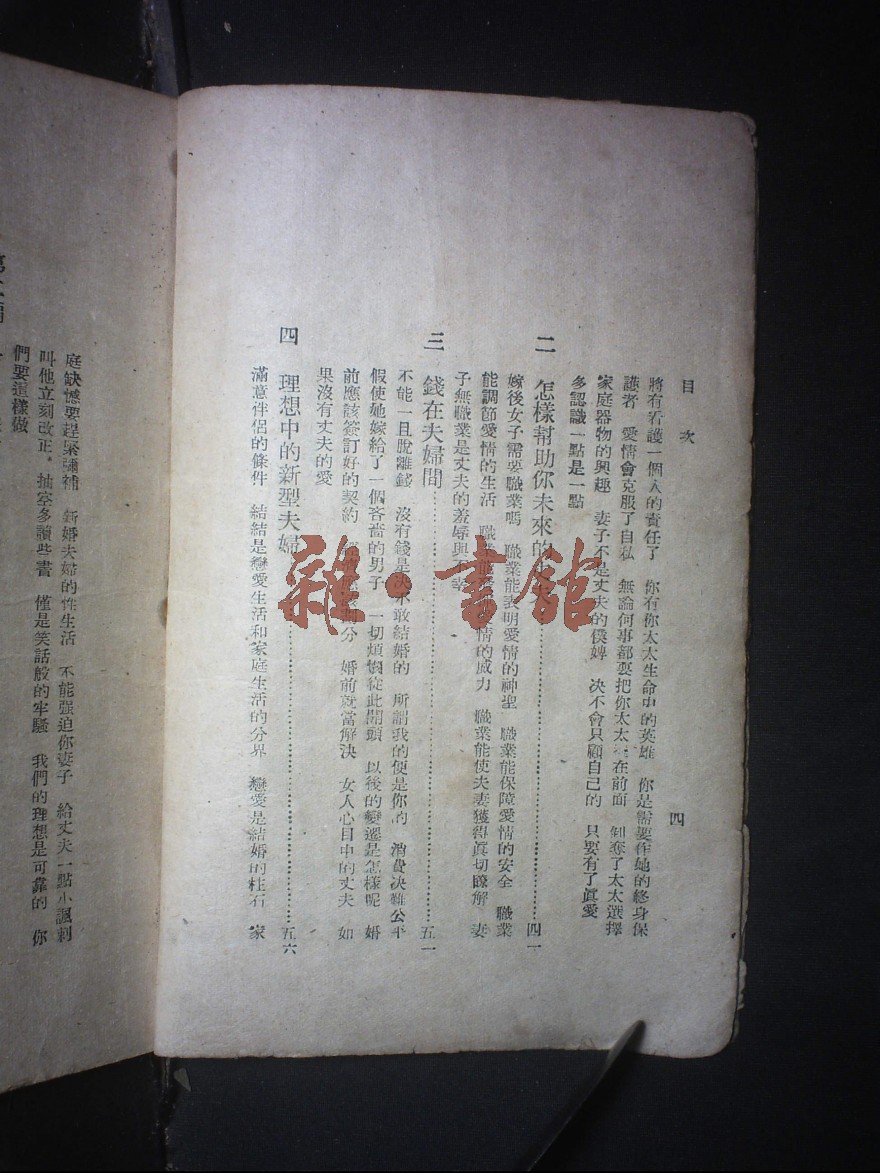 目次
四
將有看護一個人的責任了　你有你太太生命中的英雄　你是需要作她的終身保
護者　愛情會克服了自私　無論何事都要把你太太　在前面　剝奪了太太選擇
家庭器物的興趣　妻子不是丈夫的僕婢　决不會只顧自己的　只要有了眞愛
多認識一點是一點
二　怎樣幫助你未來的……四一
嫁後女子需要職業嗎　職業能表明愛情的神聖　職業能保障愛情的安全　職業
能調節愛情的生活　職業能　情的威力　職業能使夫妻獲得眞切瞭解　妻
子無職業是丈夫的羞辱與不幸
三　錢在夫婦間……五一
不能一旦脫離錢　沒有錢是决不敢結婚的　所謂我的便是你的　消費决難公平
假使她嫁給了一個吝嗇的男子　一切煩惱從此開頭　以後的變遷是怎樣呢　婚
前應該簽訂好的契約　分　婚前就當解決　女人心目中的丈夫　如
果沒有丈夫的愛
四　理想中的新型夫婦……五六
滿意伴侶的條件　結結是戀愛生活和家庭生活的分界　戀愛是結婚的柱石　家
雜·書館
庭缺憾要趕緊彌補　新婚夫婦的性生活　不能强迫你妻子　給丈夫一點小諷刺
叫他立刻改正。抽空多讀些書　僅是笑話般的牢騷　我們的理想是可靠的　你
們要這樣做